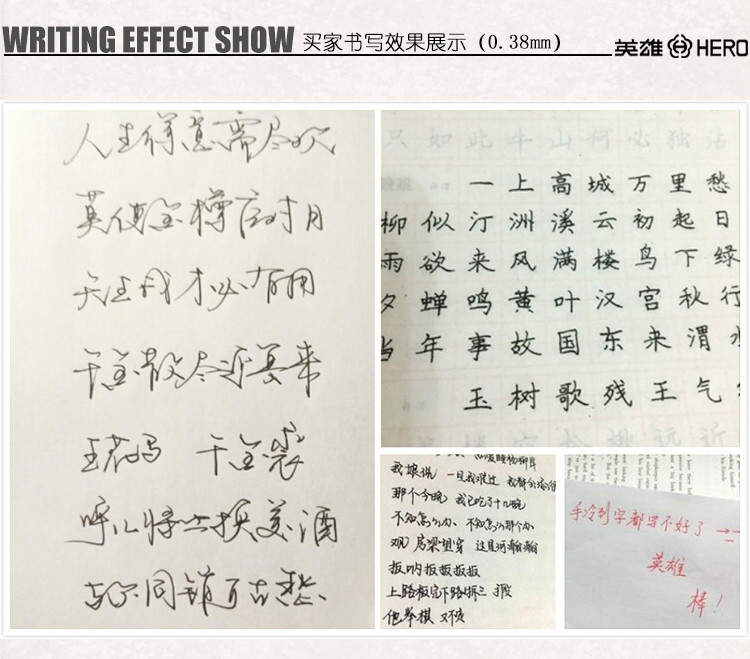 WRITING EFFECT SHOW 买家书写效果展示（0.38mm） 英雄 HERO
人生得意需尽欢
莫使金樽空对月
天生我才必有用
千金散尽还复来
五花马 千金裘
呼儿将出换美酒
与尔同销万古愁
只如此牛山何必独沾
一上高城万里愁
柳似汀洲溪云初起日
雨欲来风满楼鸟下绿
夕蝉鸣黄叶汉宫秋行
当年事故国东来渭水
玉树歌残王气
我娘说 一旦我难过
那个今晚 我已吃了十几碗
不知怎么办 不知怎么那个办
观 房梁望穿 这星河
扳呐扳扳扳扳
上路板完下路拆三
他举棋 又不
手冷到字都写不好了
英雄
棒！